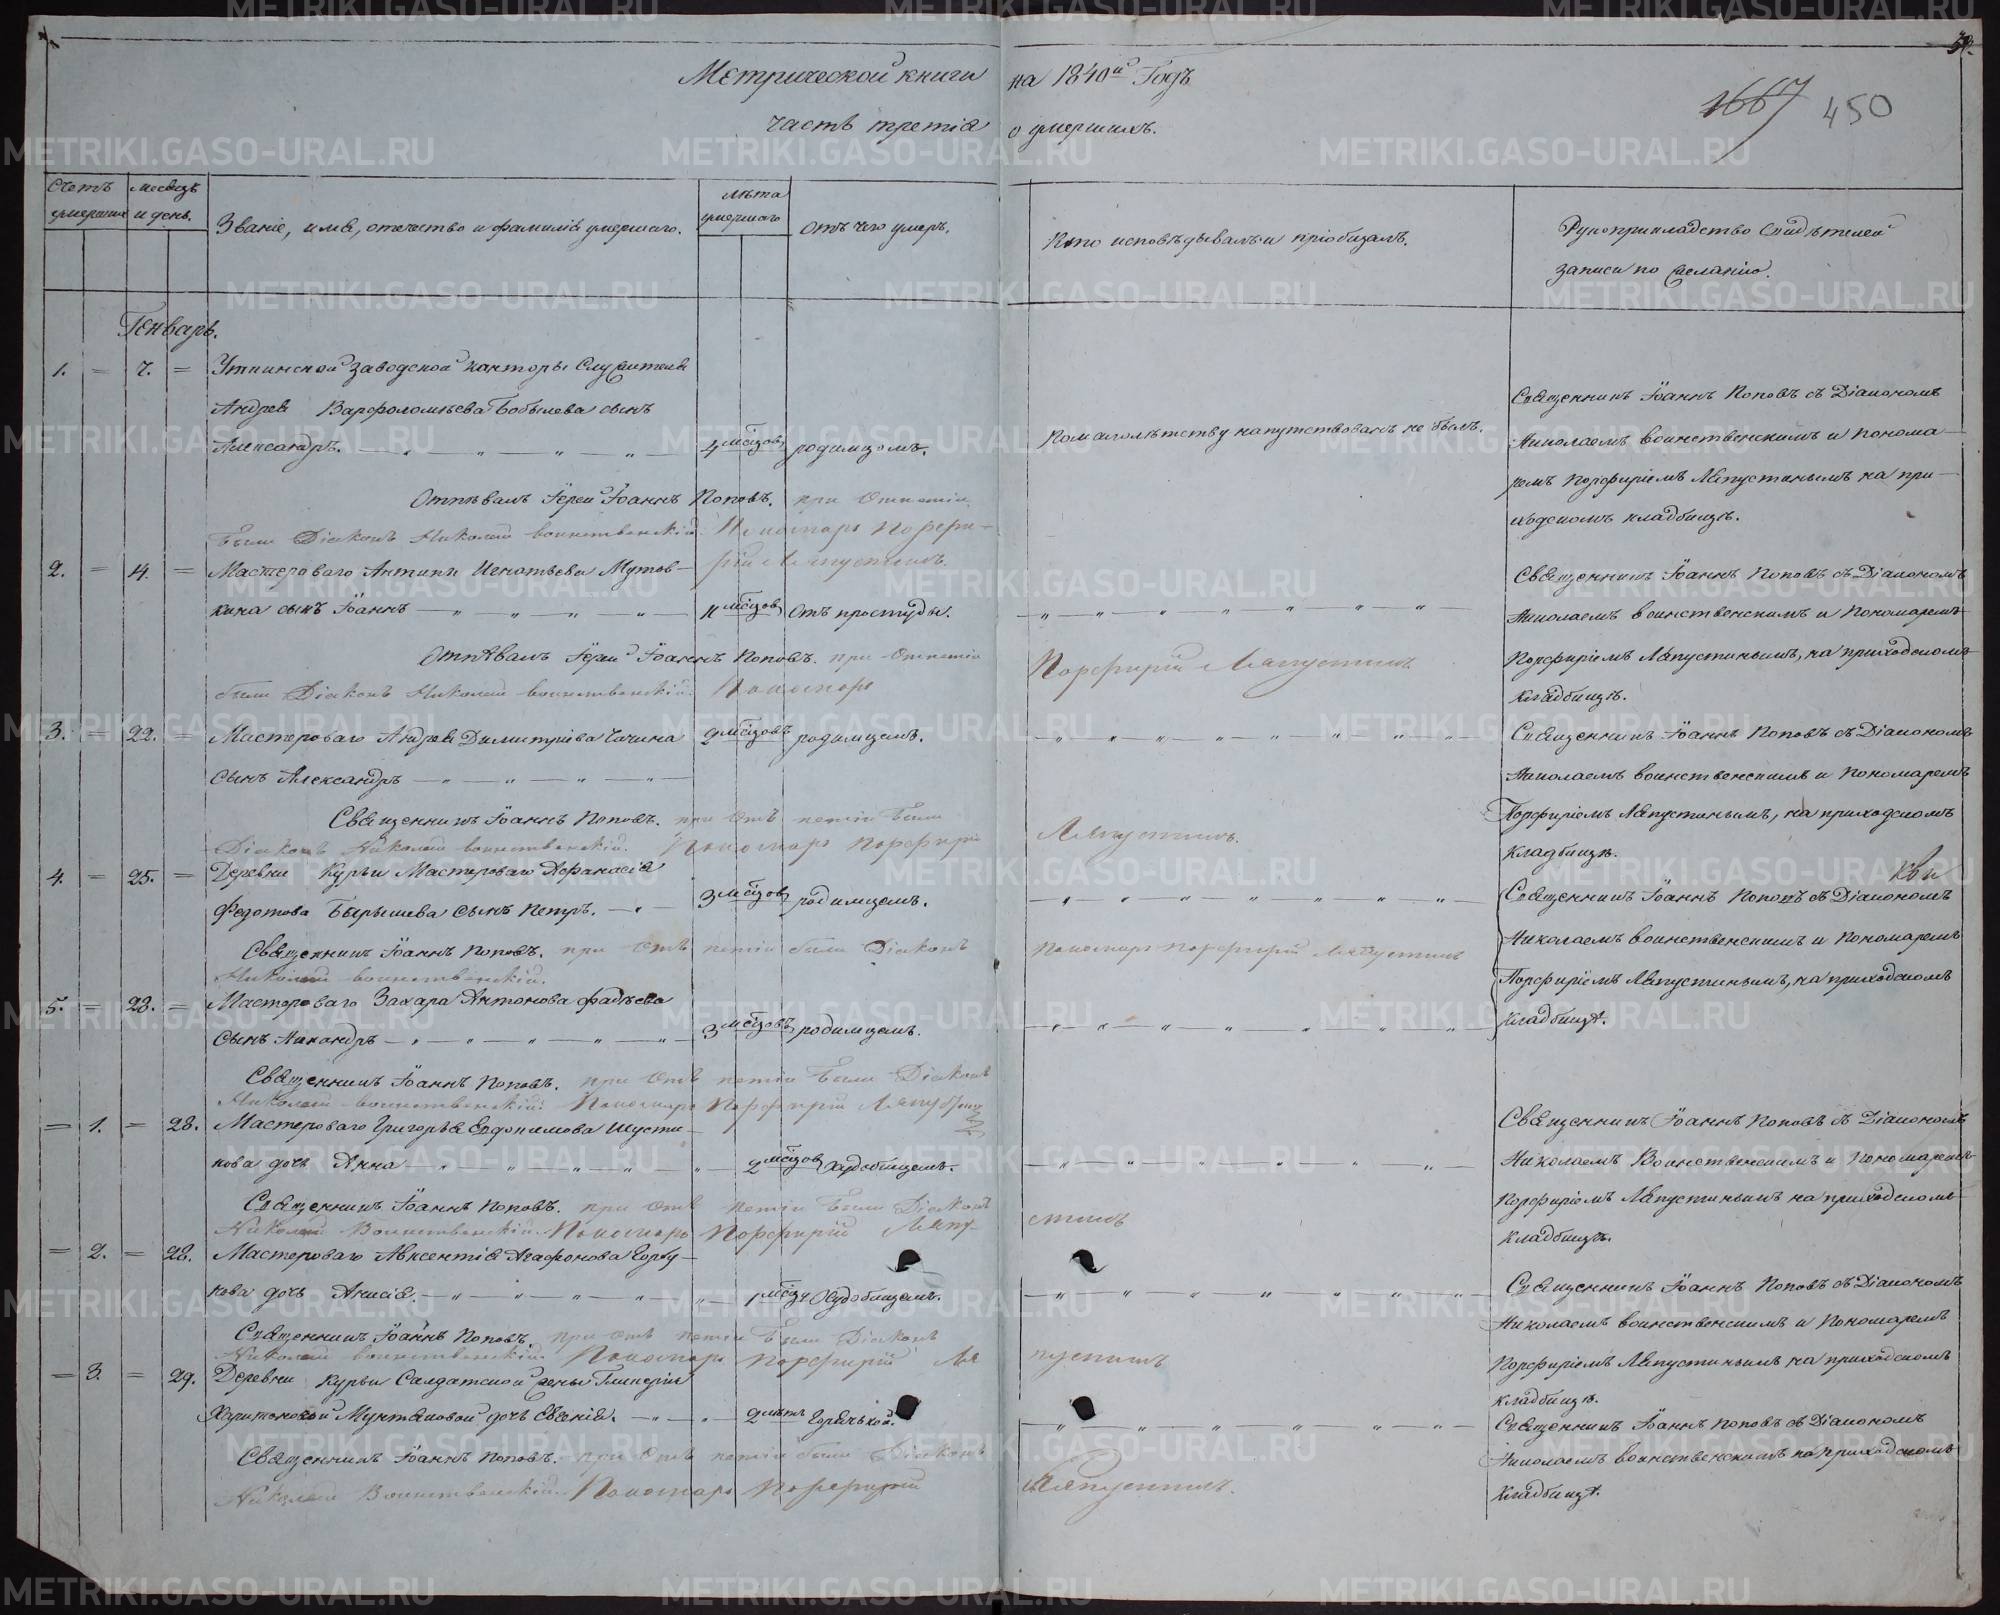 Метрической книги на 1840й Годъ
1667 450
часть третiя о умершихъ.
Счетъ умершихъ
Месяцъ и день.
Званiе, имя, отечество и фамилiя умершаго.
Лѣта умершаго
Отъ чего умеръ.
Кто исповѣдывалъ и прiобщалъ.
Рукоприкладство Свидѣтелей
записи по желанiю.
Генварь.
1. — 7. — Уткинской заводской канторы Служителя
Андрея Варфоломѣева Бобылева сынъ
Александръ. 4 мѣсяцовъ родимцомъ.
По малолѣтству напутствованъ не былъ.
Священникъ Iоаннъ Поповъ съ Дiакономъ
Николаемъ Воинственскимъ и понома-
ремъ Порфирiемъ Ляпустинымъ на при-
ходскомъ кладбищѣ.
Отпѣвалъ Iерей Iоаннъ Поповъ. при Отпетiи
были Дiаконъ Николай воинственскiй. Пономарь Порфи-
рiй Ляпустинъ.
2. — 14. — Мастероваго Антипы Игнатьева Мутов-
кина сынъ Iоаннъ 11 мѣсяцовъ Отъ простуды.
Священникъ Iоаннъ Поповъ съ Дiакономъ
Николаемъ воинственскимъ и Пономаремъ
Порфирiемъ Ляпустинымъ, на приходскомъ
кладбищѣ.
Отпѣвалъ Iерей Iоаннъ Поповъ. при Отпетiи
были Дiаконъ Николай воинственскiй. Пономарь Порфирiй Ляпустинъ
3. — 22. — Мастероваго Андрея Димитрiева
сынъ Александръ 2 мѣсяцовъ родимцемъ.
Священникъ Iоаннъ Поповъ съ Дiакономъ
Николаемъ воинственскимъ и Пономаремъ
Порфирiемъ Ляпустинымъ, на приходскомъ
Кладбищѣ.
Священникъ Iоаннъ Поповъ. при Отъ петiи были
Дiаконъ Николай воинственскiй. Пономарь Порфирiй Ляпустинъ.
4. — 25. — Деревни Курьи Мастероваго Афанасiя
Федотова Бырышева сынъ Петръ. 3 мѣсяцовъ родимцемъ.
Священникъ Iоаннъ Поповъ съ Дiакономъ
Николаемъ воинственскимъ и Пономаремъ
Порфирiемъ Ляпустинымъ, на приходскомъ
кладбищѣ.
Священникъ Iоаннъ Поповъ. при Отъ петiи были Дiаконъ
Николай воинственскiй. Пономарь Порфирiй Ляпустинъ
5. — 28. — Мастероваго Захара Антонова Фадѣева
Сынъ Никандръ 3 мѣсяцовъ родимцемъ.
Священникъ Iоаннъ Поповъ. при Отъ петiи были Дiаконъ
Николай воинственскiй. Пономарь Порфирiй
— 1. — 28. Мастероваго Григорья Евдокимова Шусти-
кова дочь Анна 2 мѣсяцовъ Худобищемъ.
Священникъ Iоаннъ Поповъ съ Дiакономъ
Николаемъ Воинственскимъ и Пономаремъ
Порфирiемъ Ляпустинымъ на приходскомъ
кладбищѣ.
Священникъ Iоаннъ Поповъ. при Отъ петiи были Дiаконъ
Николай Воинственскiй. Пономарь Порфирiй Ляпу-
стинъ
— 2. — 28. Мастероваго Авксентiя Агафонова Горбу-
нова дочь Анисiя. 1 мѣсяц Худобищемъ.
Священникъ Iоаннъ Поповъ съ Дiакономъ
Николаемъ воинственскимъ и Пономаремъ
Порфирiемъ Ляпустинымъ на приходскомъ
кладбищѣ.
Священникъ Iоаннъ Поповъ. при Отъ петiи были Дiаконъ
Николай воинственскiй. Пономарь Порфирiй Ля
пустинъ
— 3. — 29. Деревни Курьи Салдатской жены Гликерiи
Харитоновой дочь Евгенiя. 2 лѣтъ Горячькой.
Священникъ Iоаннъ Поповъ съ Дiакономъ
Николаемъ воинственскимъ на приходскомъ
кладбищѣ.
Священникъ Iоаннъ Поповъ. при Отъ петiи были Дiаконъ
Николай Воинственскiй. Пономарь Порфирiй Ляпустинъ.
METRIKI.GASO-URAL.RU